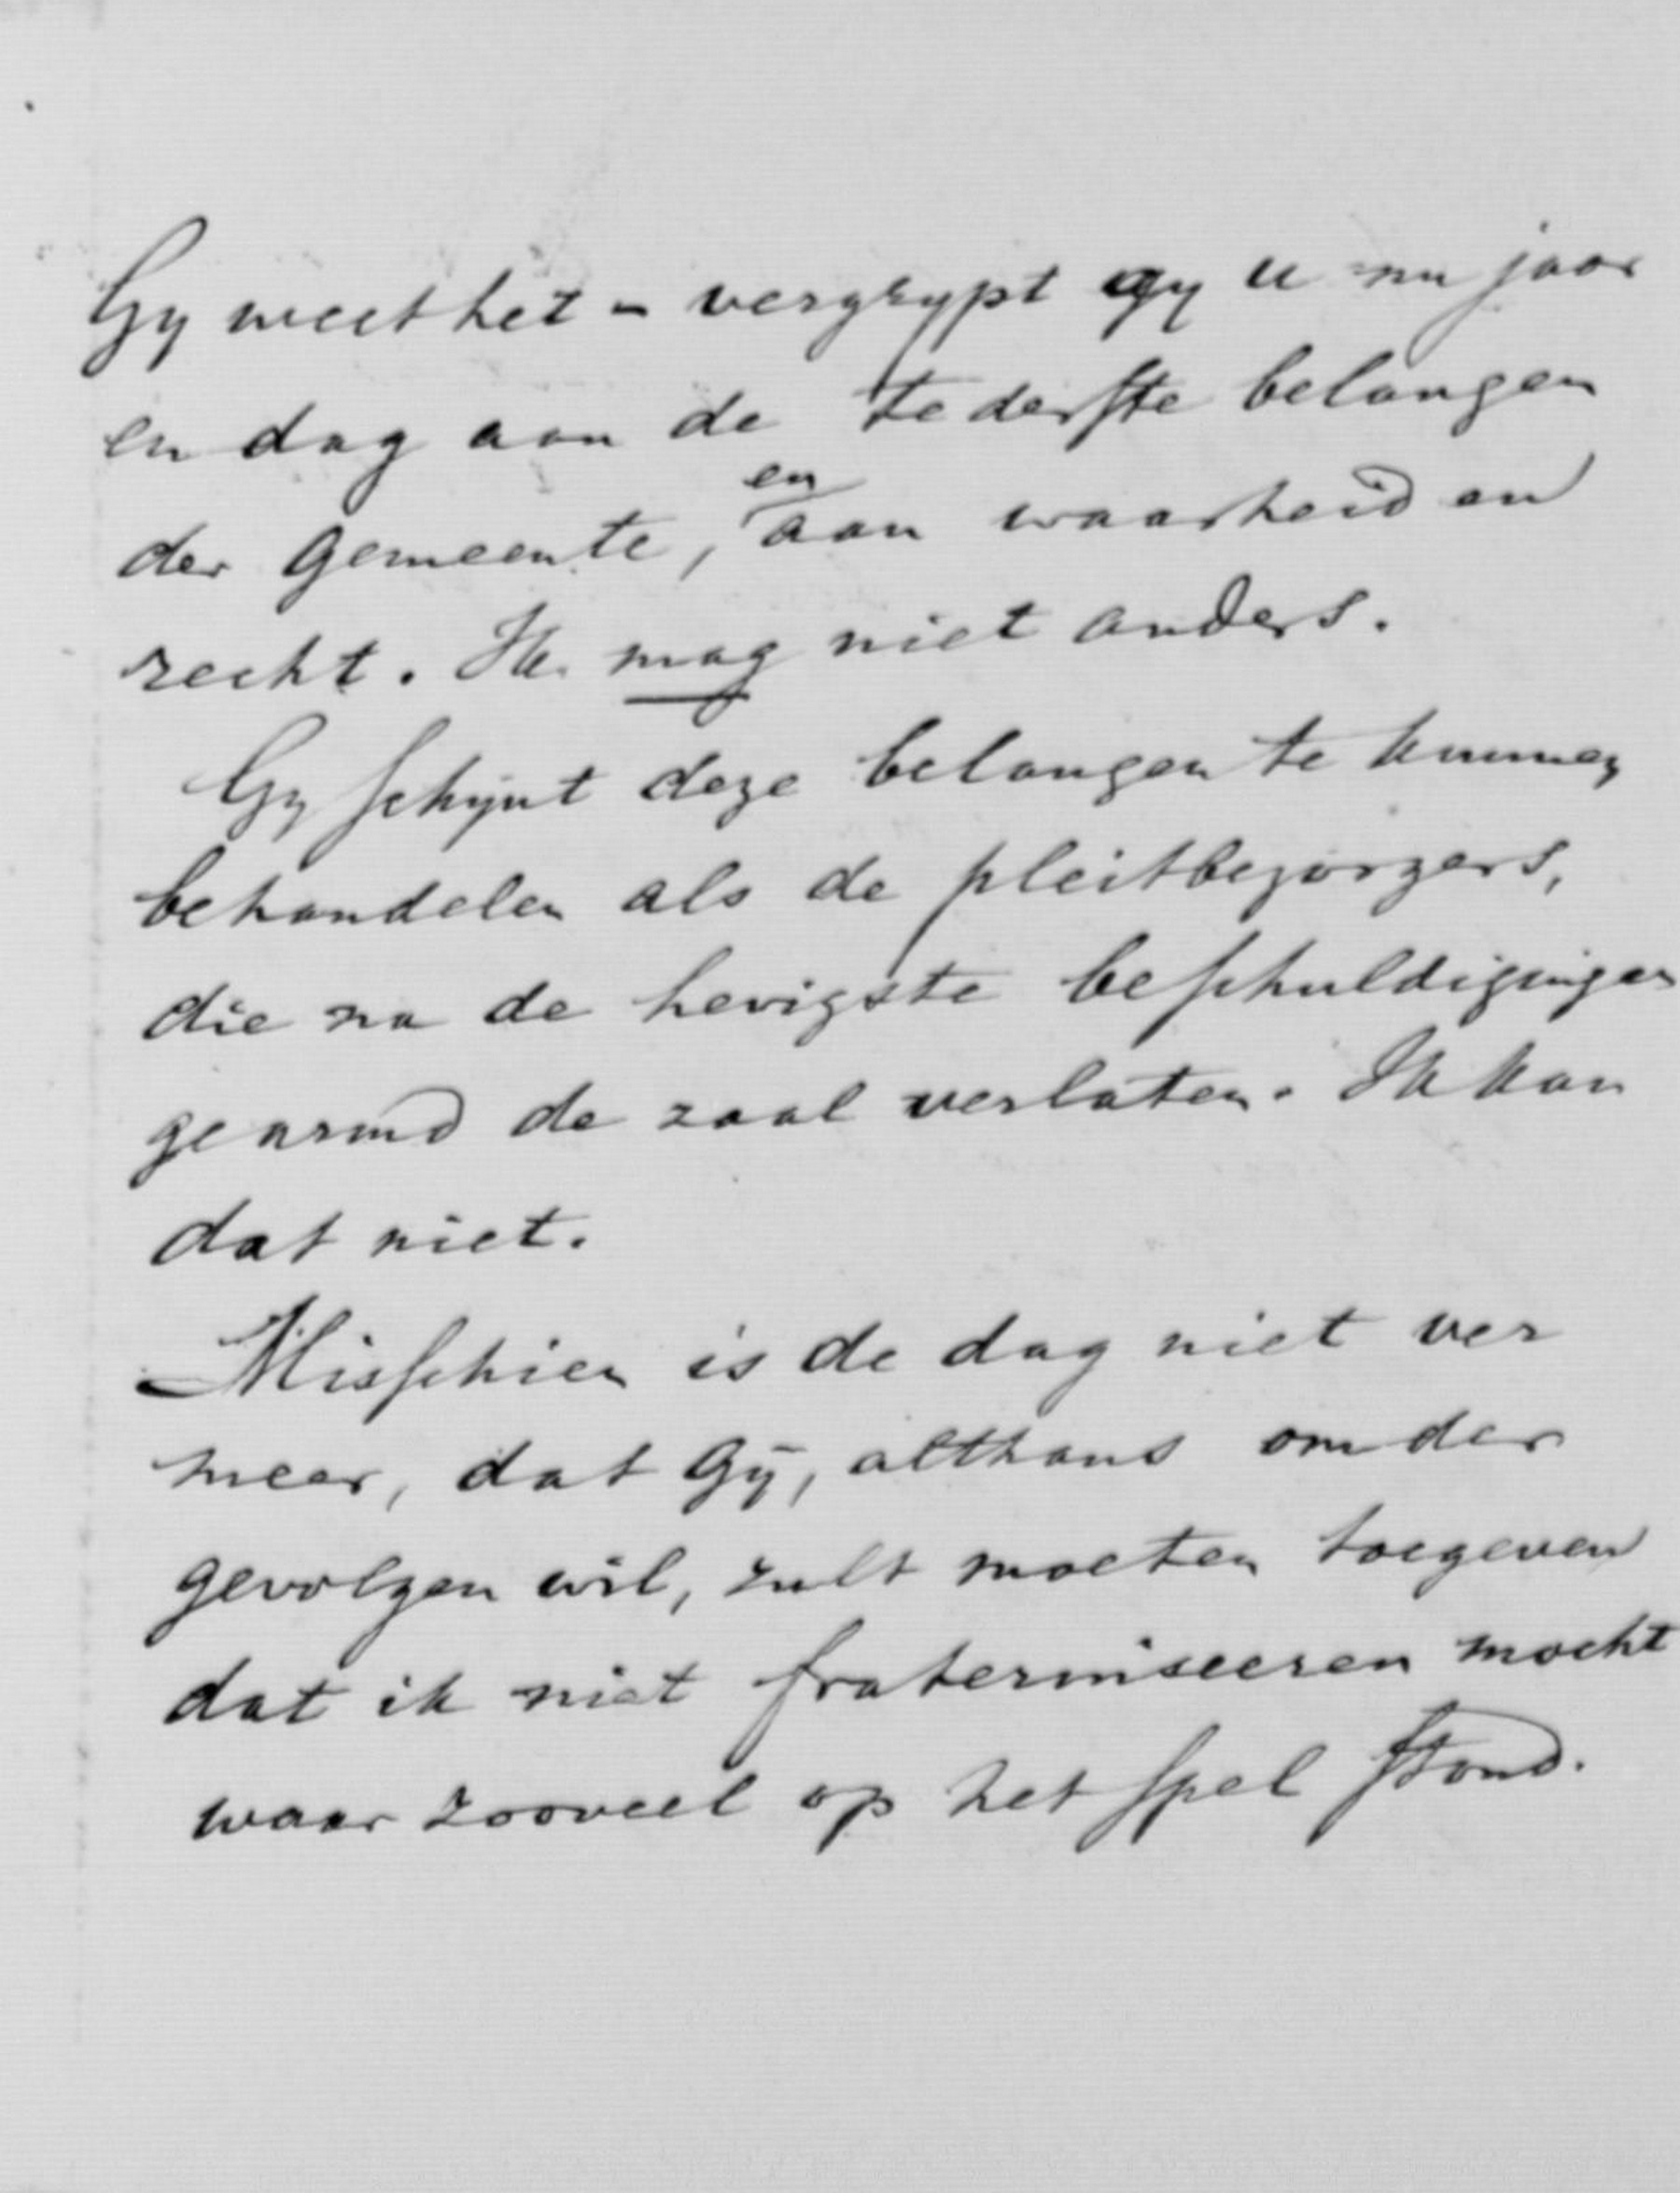 Gy weet het – vergrypt gy u nu jaar
en dag aan de tederste belangen
der Gemeente, en aan waarheid en
recht. Ik mag niet anders.
Gy schynt deze belangen te kunnen
behandelen als de pleitbezorgers,
die na de hevigste beschuldigingen
gearmd de zaal verlaten. Ik kan
dat niet.
Misschien is de dag niet ver
meer, dat Gÿ, althans om der
gevolgen wil, zult moeten toegeven
dat ik niet fraterniseeren mocht
waar zooveel op het spel stond.